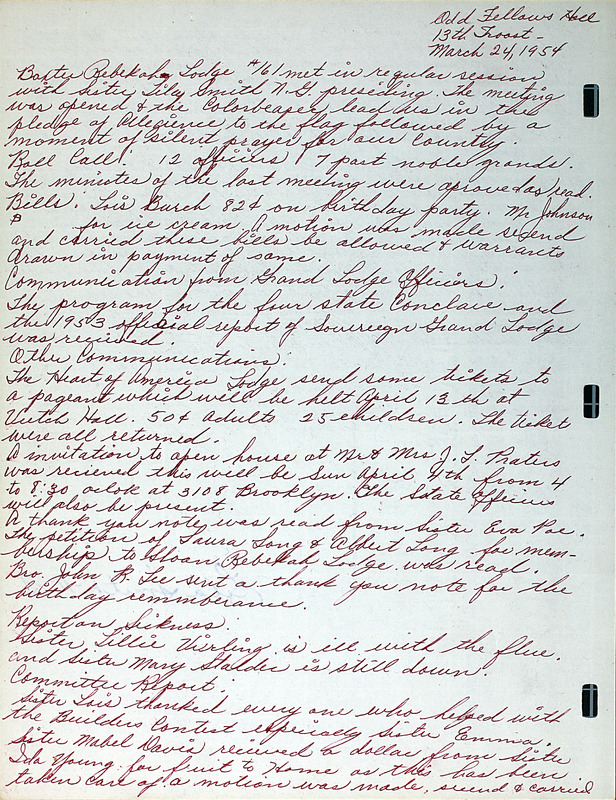 Odd Fellows Hall
13th Troost -
March 24, 1954
Baxter Rebekah Lodge #161 met in regular session
with Sister Lily Smith N.G presiding. The meeting
was opened & the Colorbearer lead us in the
pledge of Allegience to the flag followed by a
moment of silent prayer for our country.
Roll Call: 12 officers 7 past noble grands.
The minutes of the last meeting were aproved as read.
Bills. Lois Burch 82¢ on birthday party. Mr Johnson
for ice cream A motion was made secend
and carried these bills be allowed & warrants
drawn in payment of same.
Communication from Grand Lodge Officers:
The program for the four state Conclave and
the 1953 official report of Sovereegn Grand Lodge
was recieved.
Other Communications:
The Heart of America Lodge send some tickets to
a pageant which will be helt April 13th at
Hall. 50¢ adults 25 childsen. The ticket
were all returned.
A invitation to open house at Mr & Mrs J. L. Praters
was recieved this will be Sun April 4th from 4
to 8:30 oclok at 3108 Brooklyn. The State Officers
will also be present.
A thank you note was read from Sister Eva Poe.
The petition of Laura Long & Albert Long for mem-
bership to Sloan Rebekah Lodge was read.
Bro John R. Lee sent a thank you note for the
birthday remmberance.
Report on Sickness:
Sister Lillie Vierling is ill with the flue.
and Sister Mary Stalder is still down.
Committee Report:
Sister Lois thanked every one who helped with
the Builders Contest especially Sister Emma.
Sister Mabel Davis received a dollar from Sister
Ida Young for fruit to Home as this has been
taken care of a motion was made, secend & carried